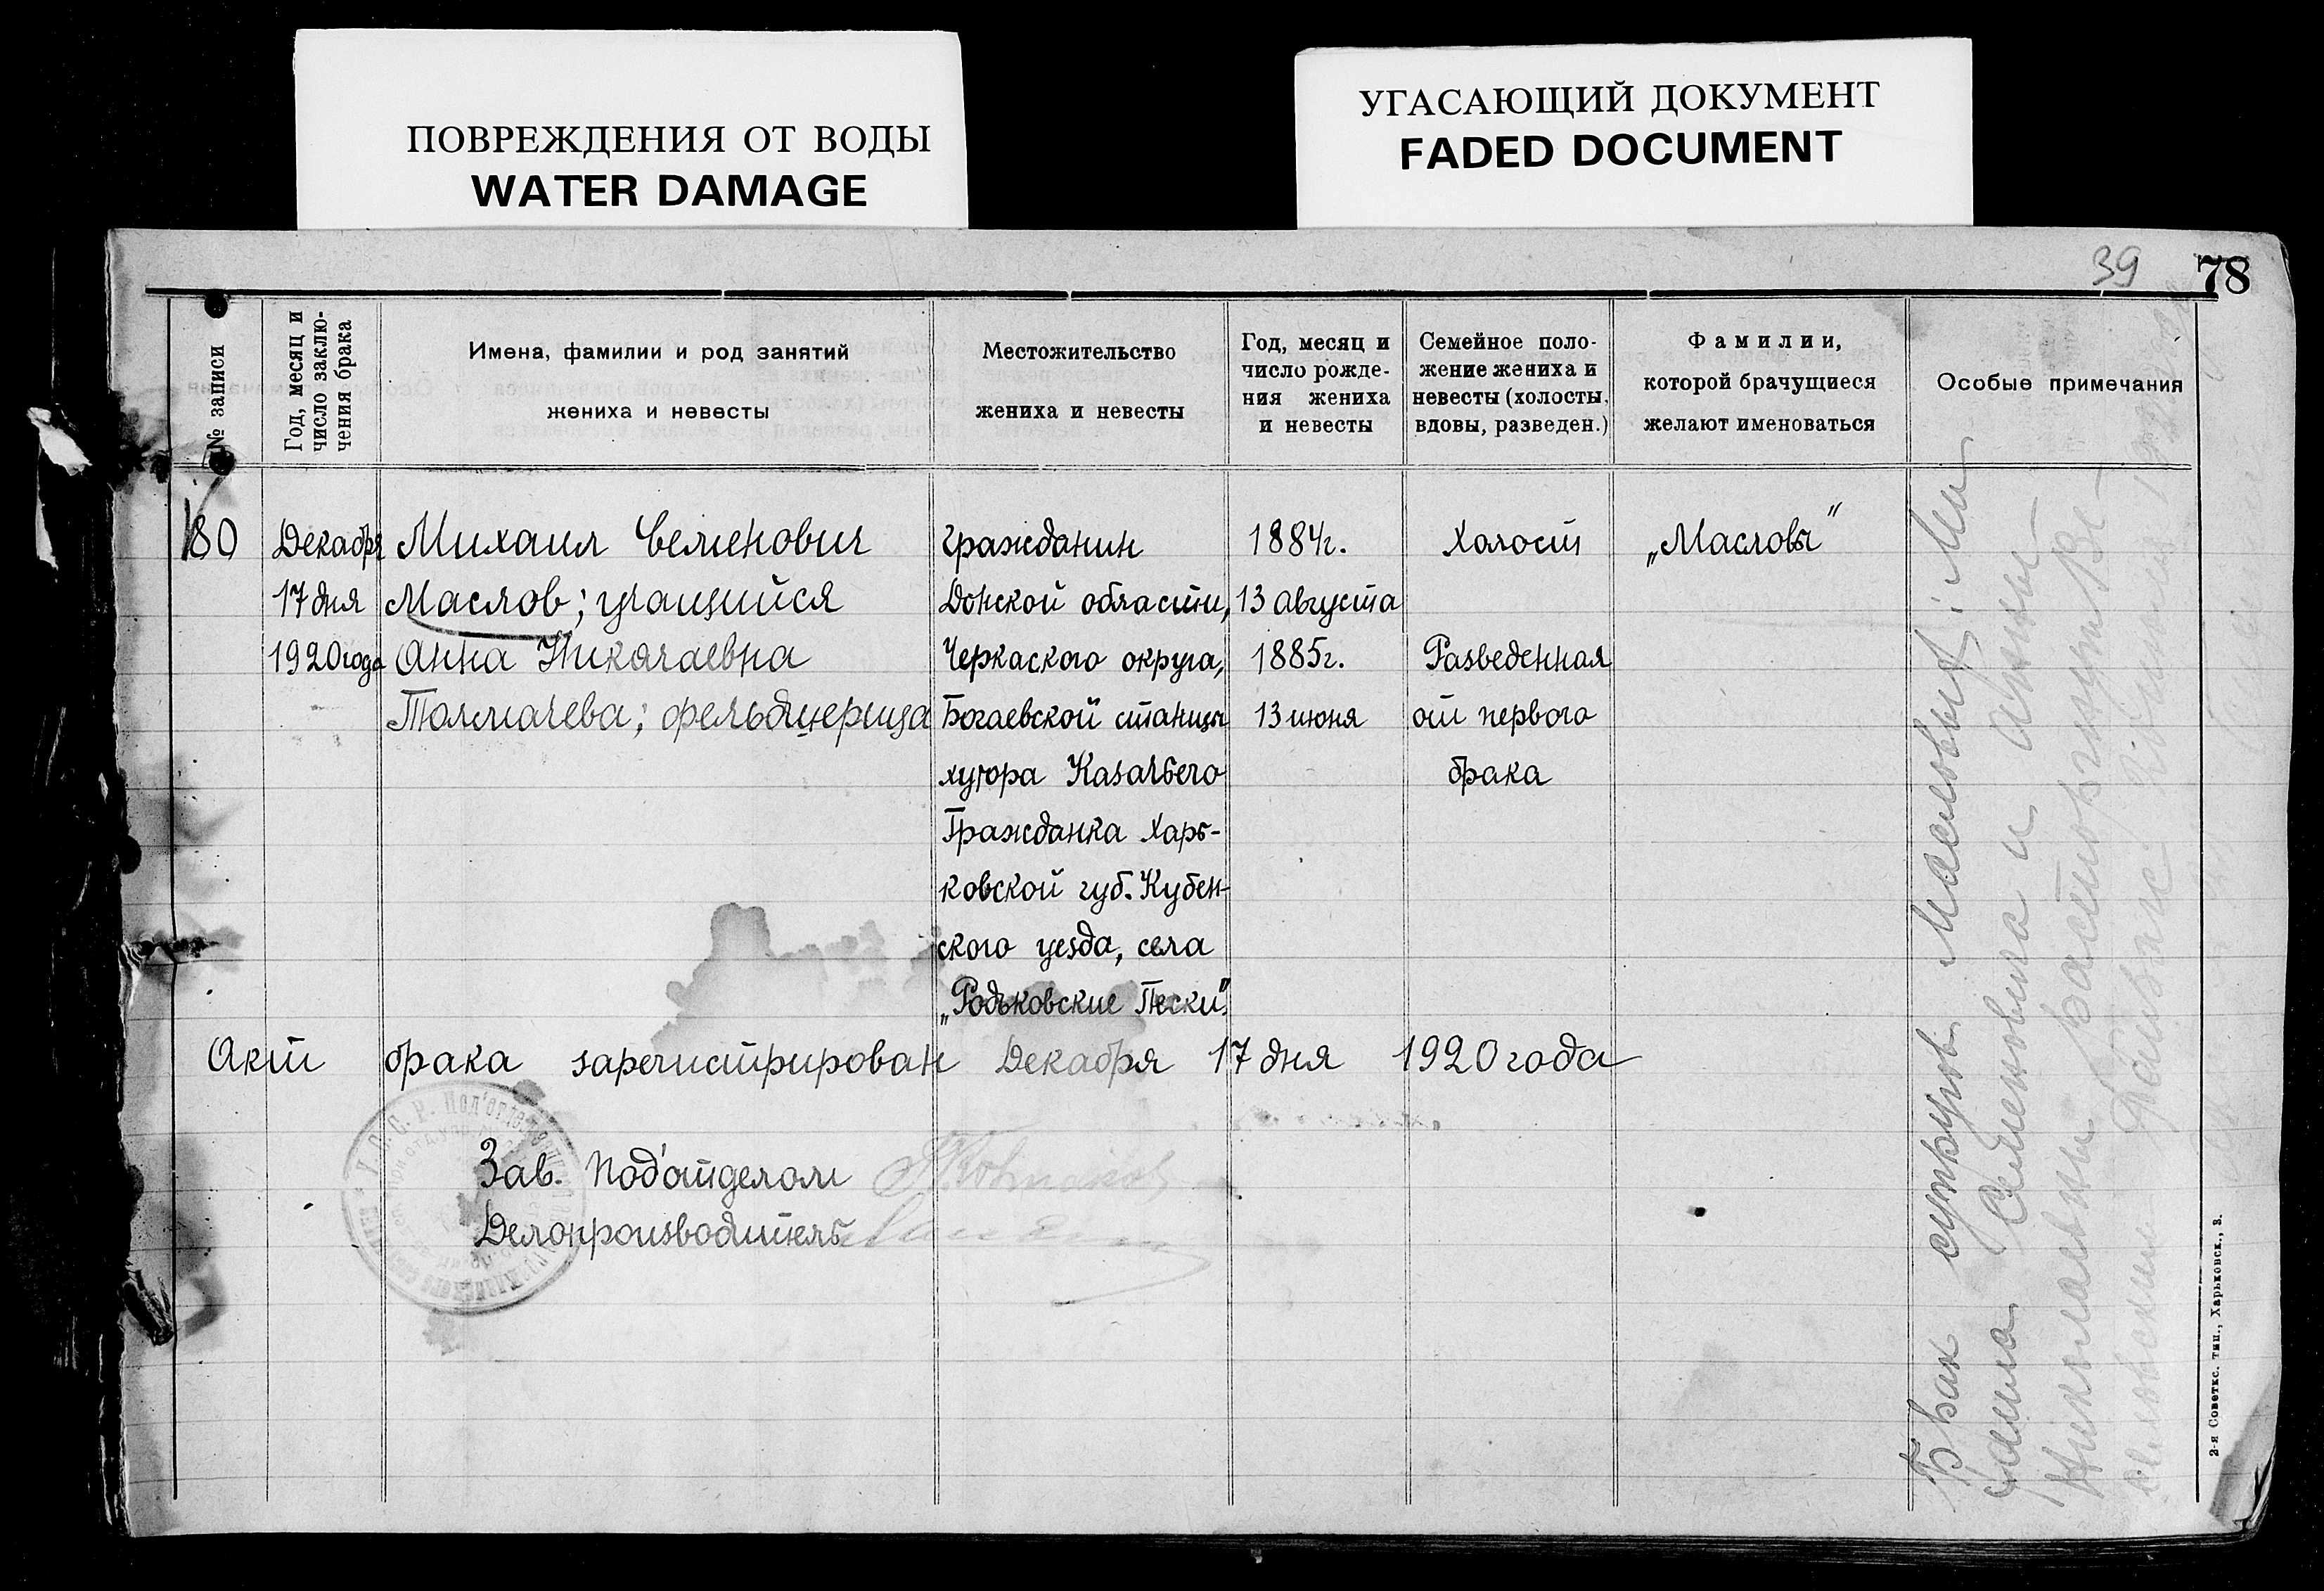 ПОВРЕЖДЕНИЯ ОТ ВОДЫ
WATER DAMAGE
УГАСАЮЩИЙ ДОКУМЕНТ
FADED DOCUMENT
39
78
№ записи
Год, месяц и
число заклю-
чения брака
Имена, фамилии и род занятий
жениха и невесты
Местожительство
жениха и невесты
Год, месяц и
число рожде-
ния жениха
и невесты
Семейное поло-
жение жениха и
невесты (холосты,
вдовы, разведен.)
Фамилии,
которой брачущиеся
желают именоваться
Особые примечания
180
Декабря
17 дня
1920 года
Михаил Семенович
Маслов; учащийся
Анна Николаевна
Толмачева; фельдшерица
гражданин
Донской области,
Черкаского округа,
Богаевской станицы
хутора Казачьего
Гражданка Харь-
ковской губ. Купен-
ского уезда, села
„Родьковские Пески".
1884г.
13 августа
1885г.
13 июня
Холост
Разведенная
от первого
брака
„Масловы"
Акт брака зарегистрирован Декабря 17 дня 1920 года
Зав. Под'отделом
Делопроизводитель
Брак супругов Масловых: Ми-
хаила Семеновича и Анны
Николаевны расторгнут
2-я Советск. тип., Харьковск., 3.